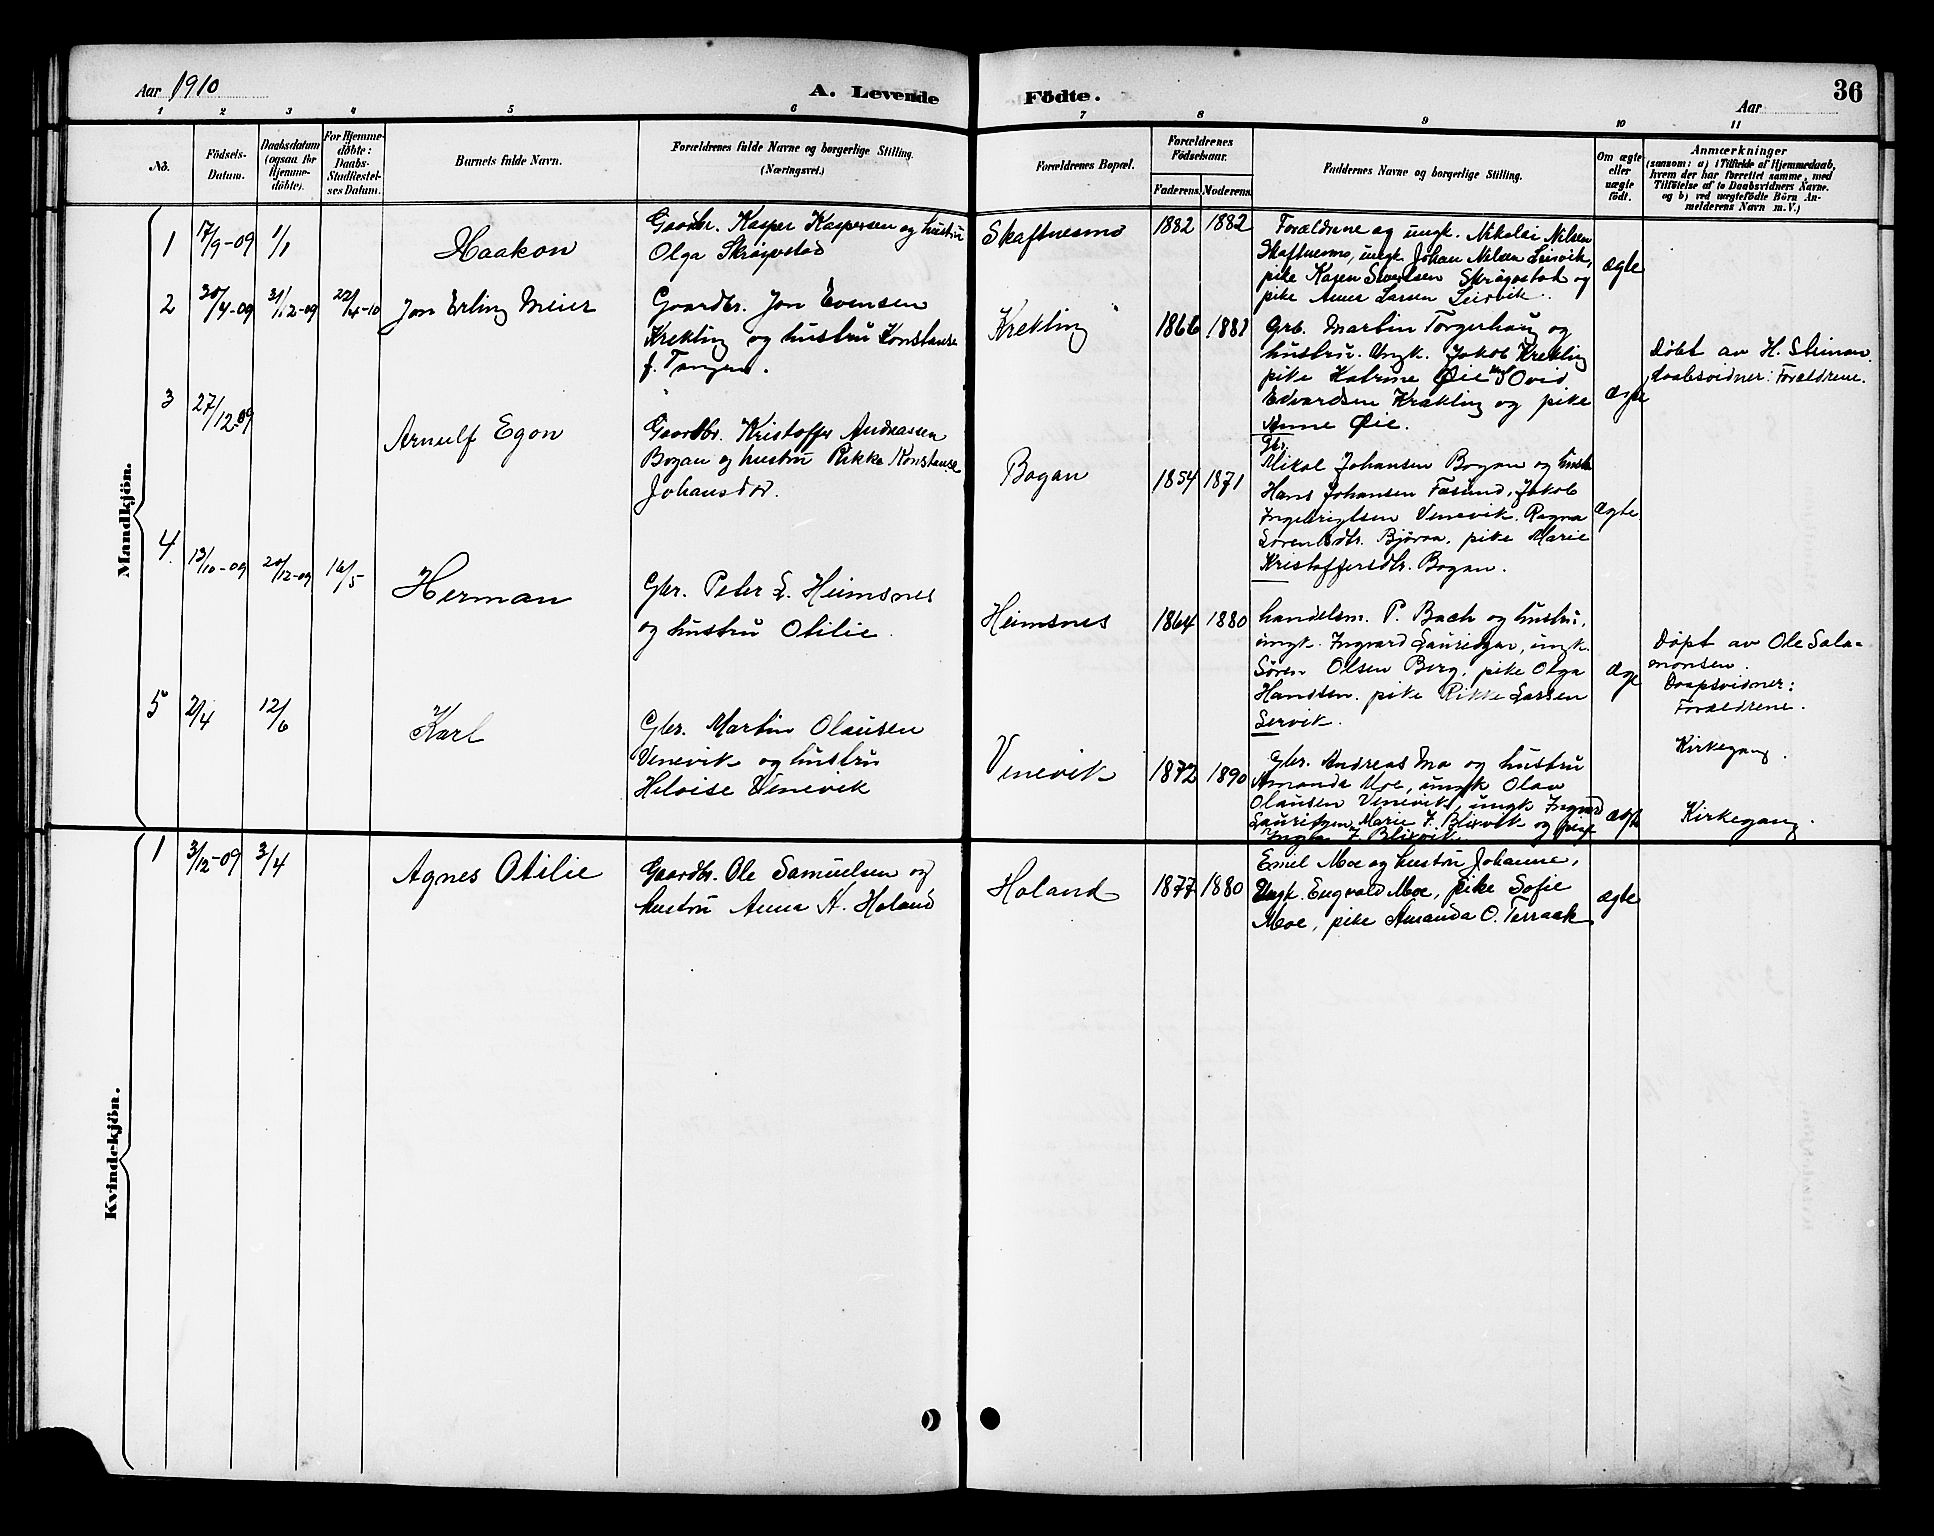 Aar 1910
A. Levende Födte.
Aar
36
1 2 3 4 5 6 7 8 9 10 11
No.
Födsels-Datum.
Daabsdatum (ogsaa for Hjemmedøbte).
For Hjemmedøbte: Daabs-Stadfæstelses Datum.
Barnets fulde Navn.
Forældrenes fulde Navne og borgerlige Stilling. (Næringsvei.)
Forældrenes Bopæl.
Forældrenes Födselsaar.
Faderens. Moderens.
Faddernes Navne og borgerlige Stilling.
Om ægte eller uægte født.
Anmærkninger
(saasom: a) i Tilfælde af Hjemmedaab, hvem der har forrettet samme, med Tilföielse af to Daabsvidners Navne, og b) ved uægtefödte Börn Anmelderens Navn m. V.)
Mandkjön.
1 17/9-09 1/1
Haakon
Gaardbr. Kasper Kaspersen og hustru
Olga Skrøgstad
Skaftnesmo
1882 1882
Forældrene og ungk. Nikolai Nilsen
Skaftnesmo, ungk. Johan Nilsen Leirvik,
pike Karen Sivertsen Skrøgstad og
pike Anna Larsen Leirvik.
ægte
2 30/4-09 31/12-09 22/4-10
Jon Erling Meier
Gaardbr. Jon Evensen
Krekling og hustru Konstanse
f. Tangen.
Krekling
1866 1881
Grb. Martin Torgerhaug og
hustru. Ungk. Jakob Krekling
pike Katrine Øie ungk Ovid
Edvardsen Krækling og pike
Anne Øie.
ægte
Døbt av H. Steinan.
Daabsvidner: Forældrene.
3 27/12-09
Arnulf Egon
Gaardbr. Kristoffer Andreassen
Bogan og hustru Rikke Konstanse
Johansdtr.
Bogan
1854 1871
Gbr.
Mikal Johansen Bogan og hustru
Hans Johansen Fasund, Jakob
Ingebrigtsen Venevik. Ragna
Sørensdtr. Bjøraa, pike Marie
Kristoffersdtr. Bogan.
ægte
4. 13/10-09 20/12-09 16/5
Herman
Gbr. Peter L. Heimsnes
og hustru Otilie.
Heimsnes
1864 1880
handelsm. P. Bach og hustru,
ungk. Ingvard Lauritzen, ungk.
Søren Olsen Berg, pike Olga
Hansen. pike Rikke Larsen
Lervik.
ægte
Døpt av Ole Salamonsen.
Daapsvidner:
Forældrene.
Kirkegang.
5 2/4 12/6
Karl
Gbr. Martin Olausen
Venevik og hustru
Heloise Venevik
Venevik
1872 1890
Gbr. Andreas Mo og hustru
Amanda Moe, ungk Olav
Olausen Venevik, ungk Ingvard
Lauritzen, Marie J. Blixvik og pike
Blixvik
ægte
Kirkegang.
Kvindekjön.
1 3/12-09 3/4
Agnes Otilie
Gaardbr. Ole Samuelsen og
hustru Anna K. Holand
Holand
1877 1880
Emil Moe og hustru Johanne,
Ungk. Engvald Moe, pike Sofie
Moe, pike Amanda O. Terraak
ægte